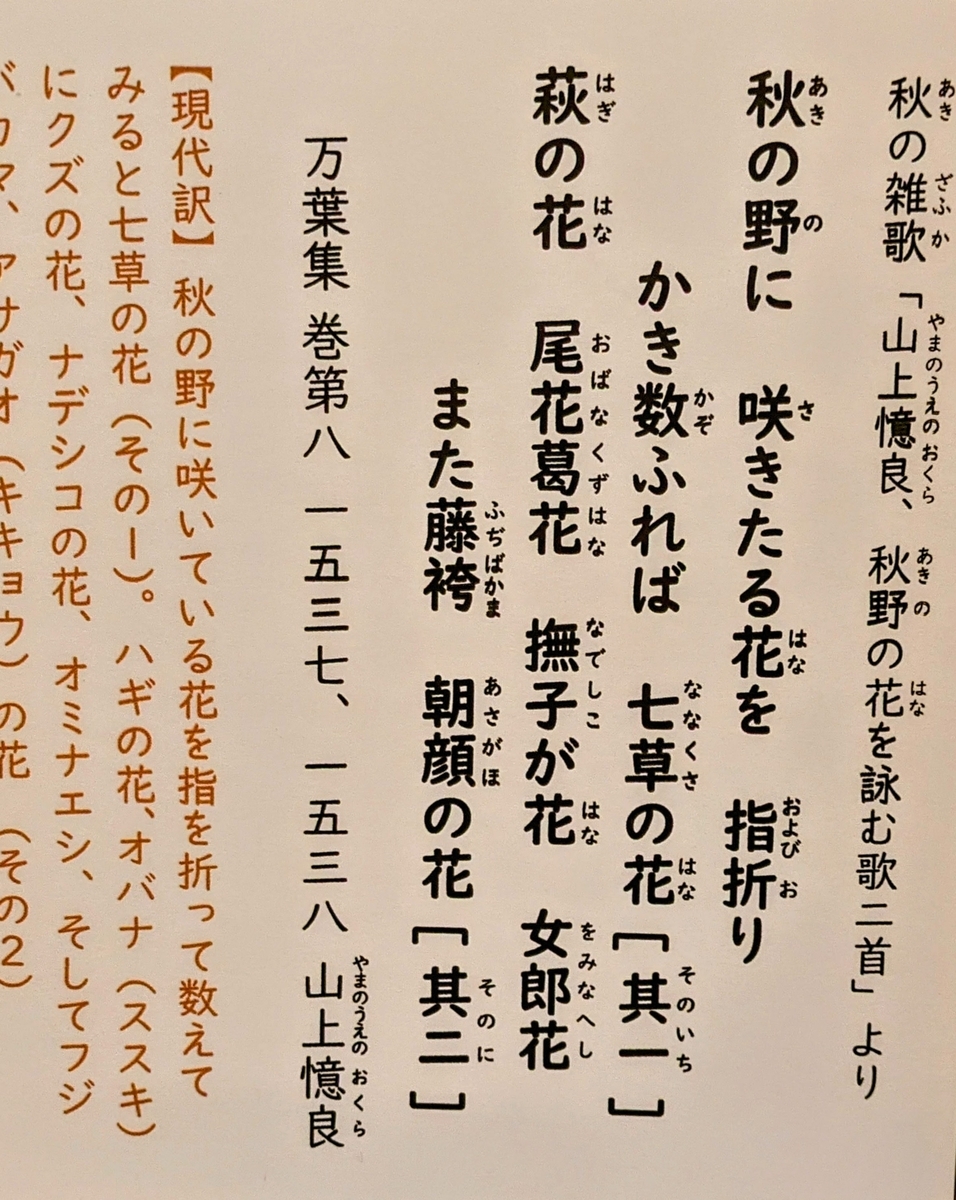 秋の雑歌「山上憶良、秋野の花を詠む歌二首」より
秋の野に 咲きたる花を 指折り
かき数ふれば 七草の花[其一]
萩の花 尾花葛花 撫子が花 女郎花
また藤袴 朝顔の花[其二]
万葉集 巻第八 一五三七、一五三八 山上憶良
【現代訳】秋の野に咲いている花を指を折って数えて
みると七草の花(その一)。ハギの花、オバナ(ススキ)
にクズの花、ナデシコの花、オミナエシ、そしてフジ
バカマ、アサガオ(キキョウ)の花 (その2)